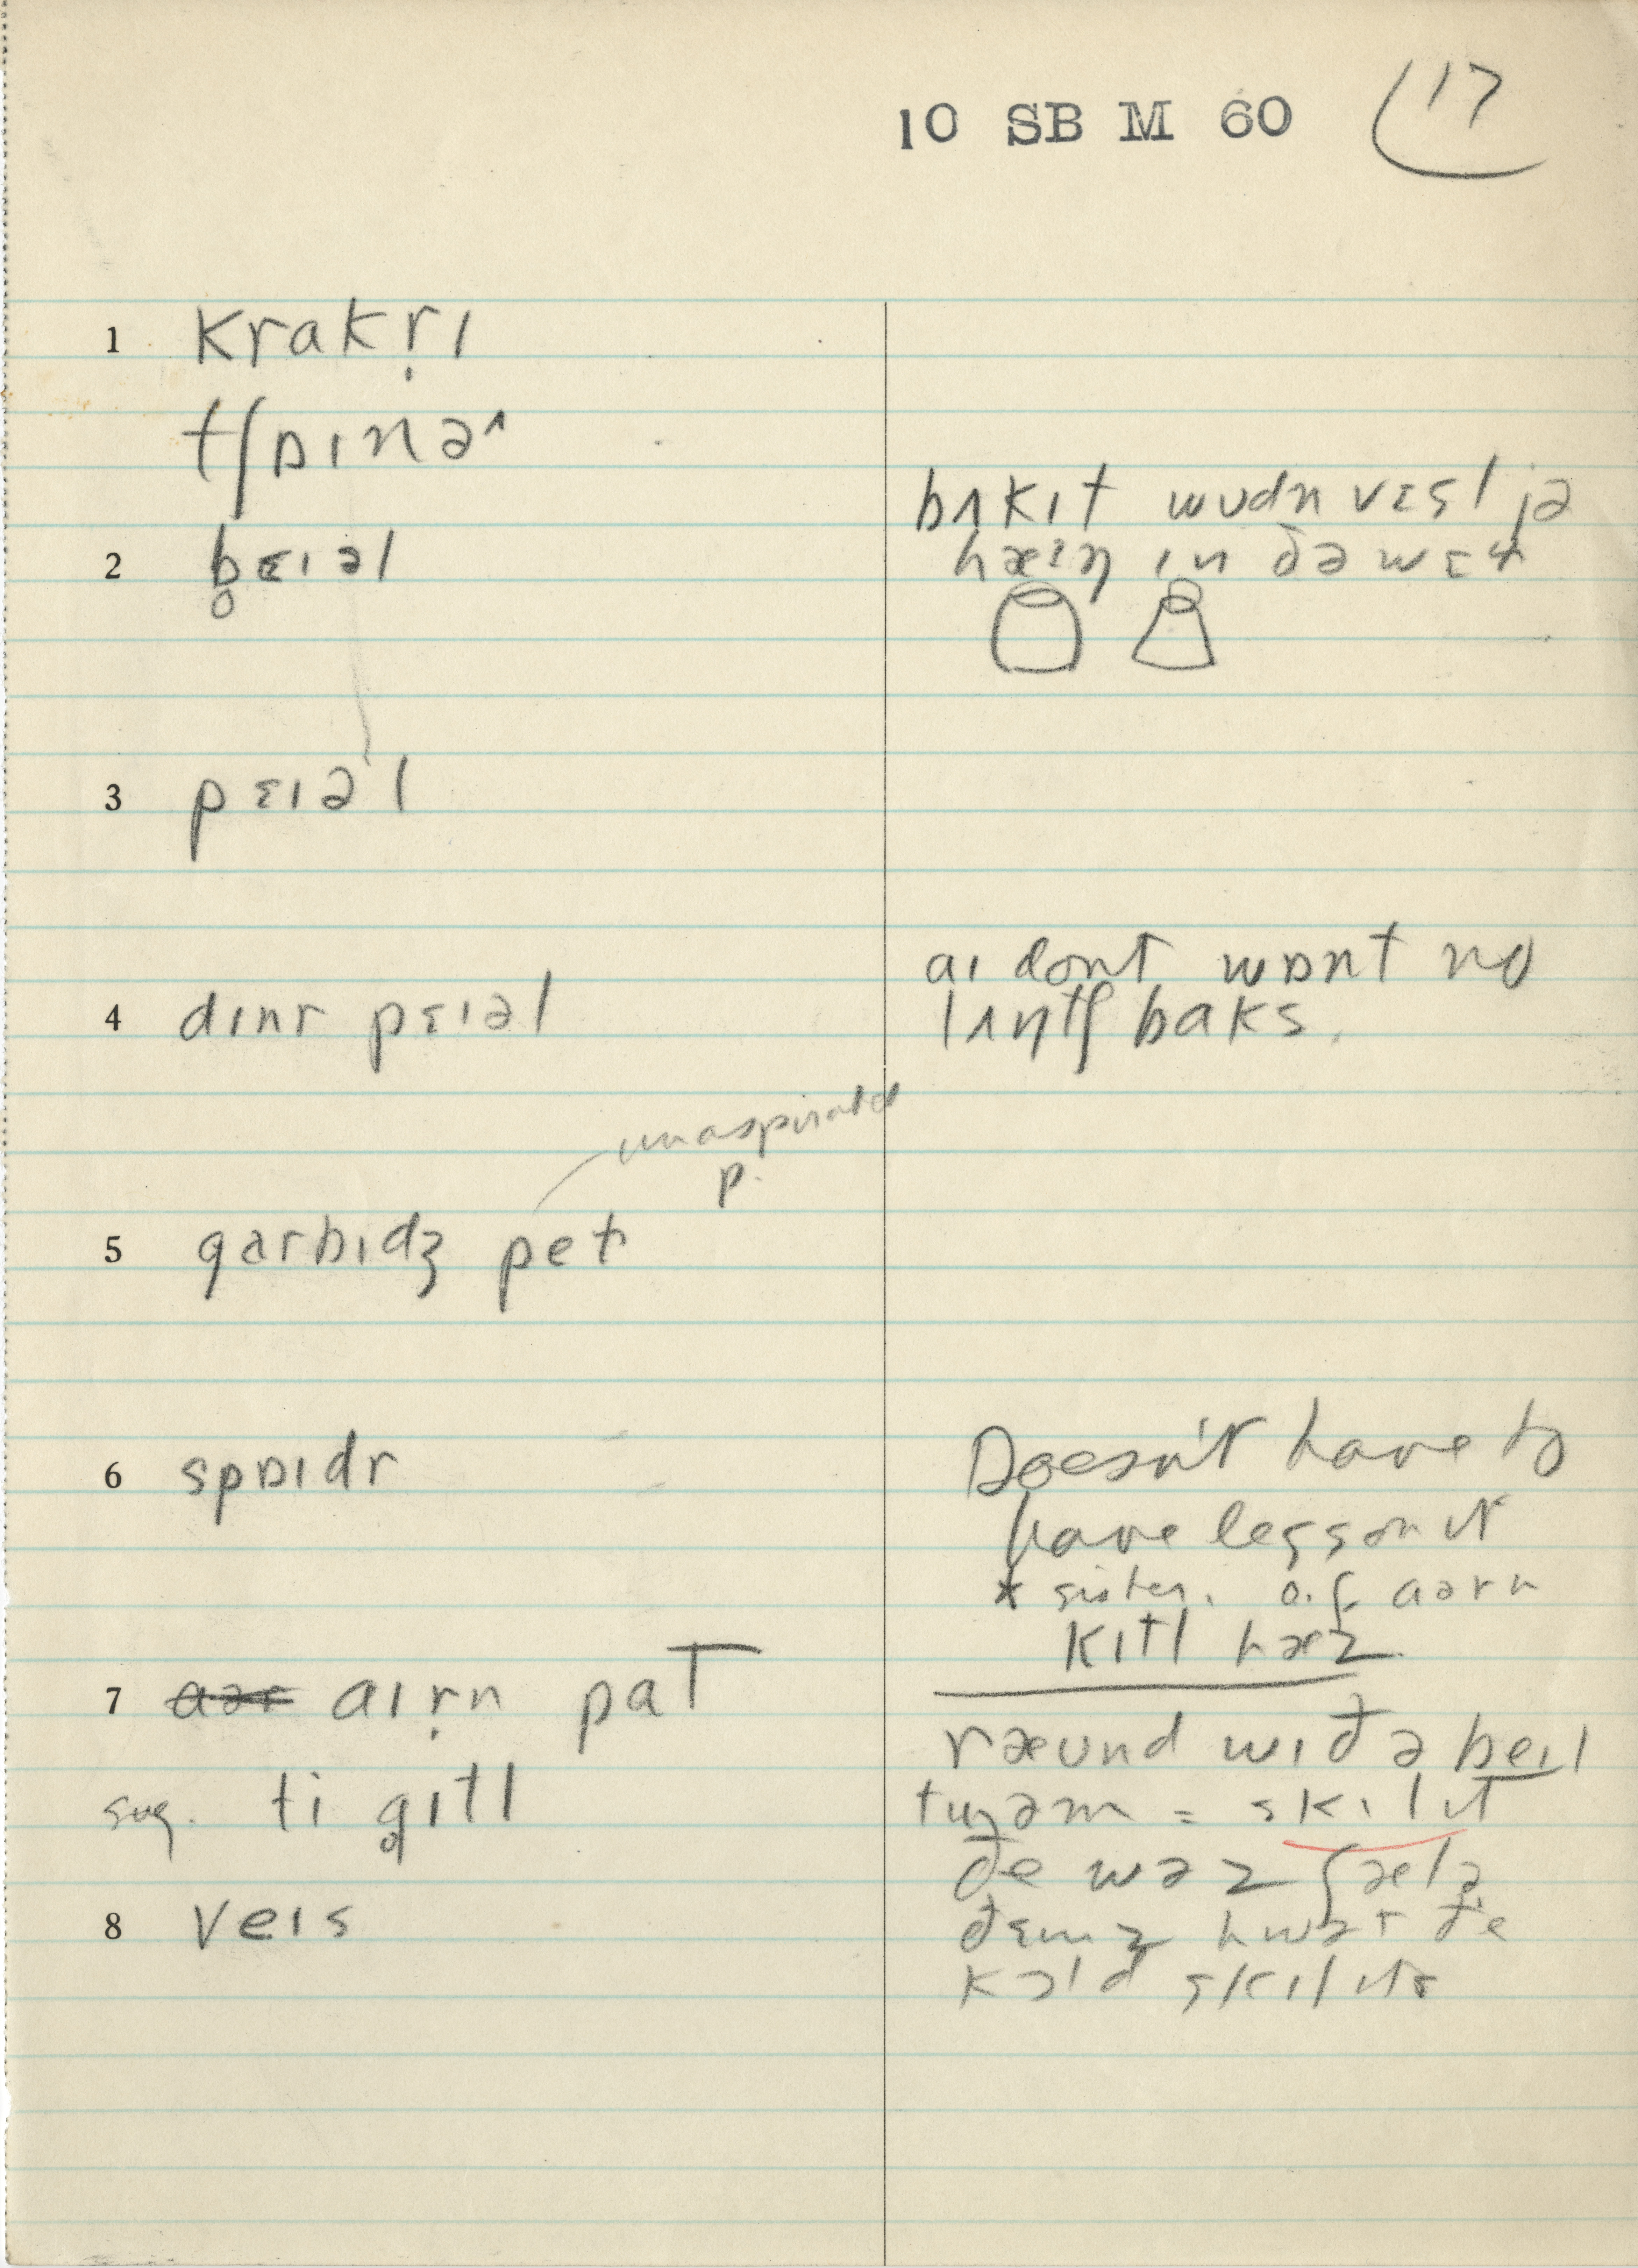 10 SB M 60 17
1 krakṛɪ
tʃɒɪnə^
2 b̥ɛɪəl
bʌkɪt wʊdn vɛsl jə
hæɪŋ ɪn ðə wɛl
3 pɛɪəl
4 dɪnr pɛɪəl
aɪ dont wɒnt no
lʌntʃ baks.
unaspirated
p.
5 garbɪdʒ pet
6 spɒɪdr
Doesn't have to
have legs on it
* sister. o.f. aərn
kɪtl hæz
7 aər aɪṛn pat
sug. ti g̥ɪtl
ræʊnd wɪð ə beɪl
tuəm = skɪlɪt
ðe wəz ʃælə
ðɛmz hwət ðe
kɔld skɪlɪts
8 veɪs